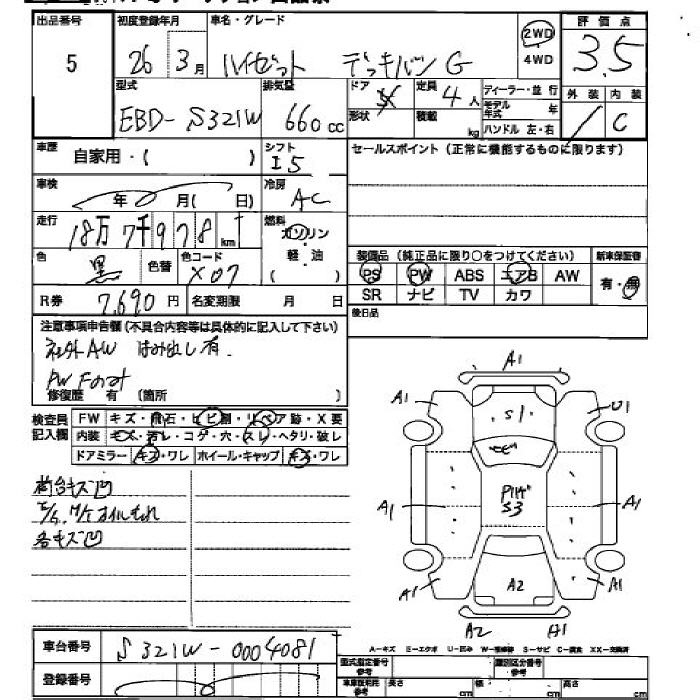 出品番号 初度登録年月 車名・グレード 2WD 評価点
5 26 3月 ハイゼット デッキバン G 4WD 3.5
型式 排気量 ドア 定員 4人 ディーラー・並行 外装 内装
EBD-S321W 660cc 形状 積載 kg モデル年式 年 / C
ハンドル 左・右
車歴 自家用・( ) シフト I5 セールスポイント(正常に機能するものに限ります)
車検 年 月( 日) 冷房 AC
走行 18万7千978km 燃料 ガソリン
色 黒 色替 色コード X07 軽・油 ( )
装備品(純正品に限り○をつけてください) 新車保証書
PS PW ABS エアB AW 有・無
SR ナビ TV カワ
R券 7,690円 名変期限 月 日 後日品
注意事項申告欄(不具合内容等は具体的に記入して下さい)
社外AW はみ出し有.
PW Fのみ
修復歴 有 (箇所 )
検査員記入欄 FW キズ・飛石・ヒビ割・リペア跡・X要
内装 キズ・汚レ・コゲ・穴・スレ・ヘタリ・破レ
ドアミラー キズ・ワレ ホイール・キャップ キズ・ワレ
荷台キズ凹
オイルもれ
各キズ凹
A1
A1 S1 U1
A1 S3 A1
A1 A2 A1
A2 A1
車台番号 S321W-0004081
A-キズ E-エクボ U-凹み W-補修跡 S-サビ C-腐食 XX-交換済
登録番号 型式指定番号 参考 類別区分番号 参考
車庫証明用 参考 長さ cm 幅 cm 高さ cm